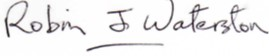 Robin J Waterston